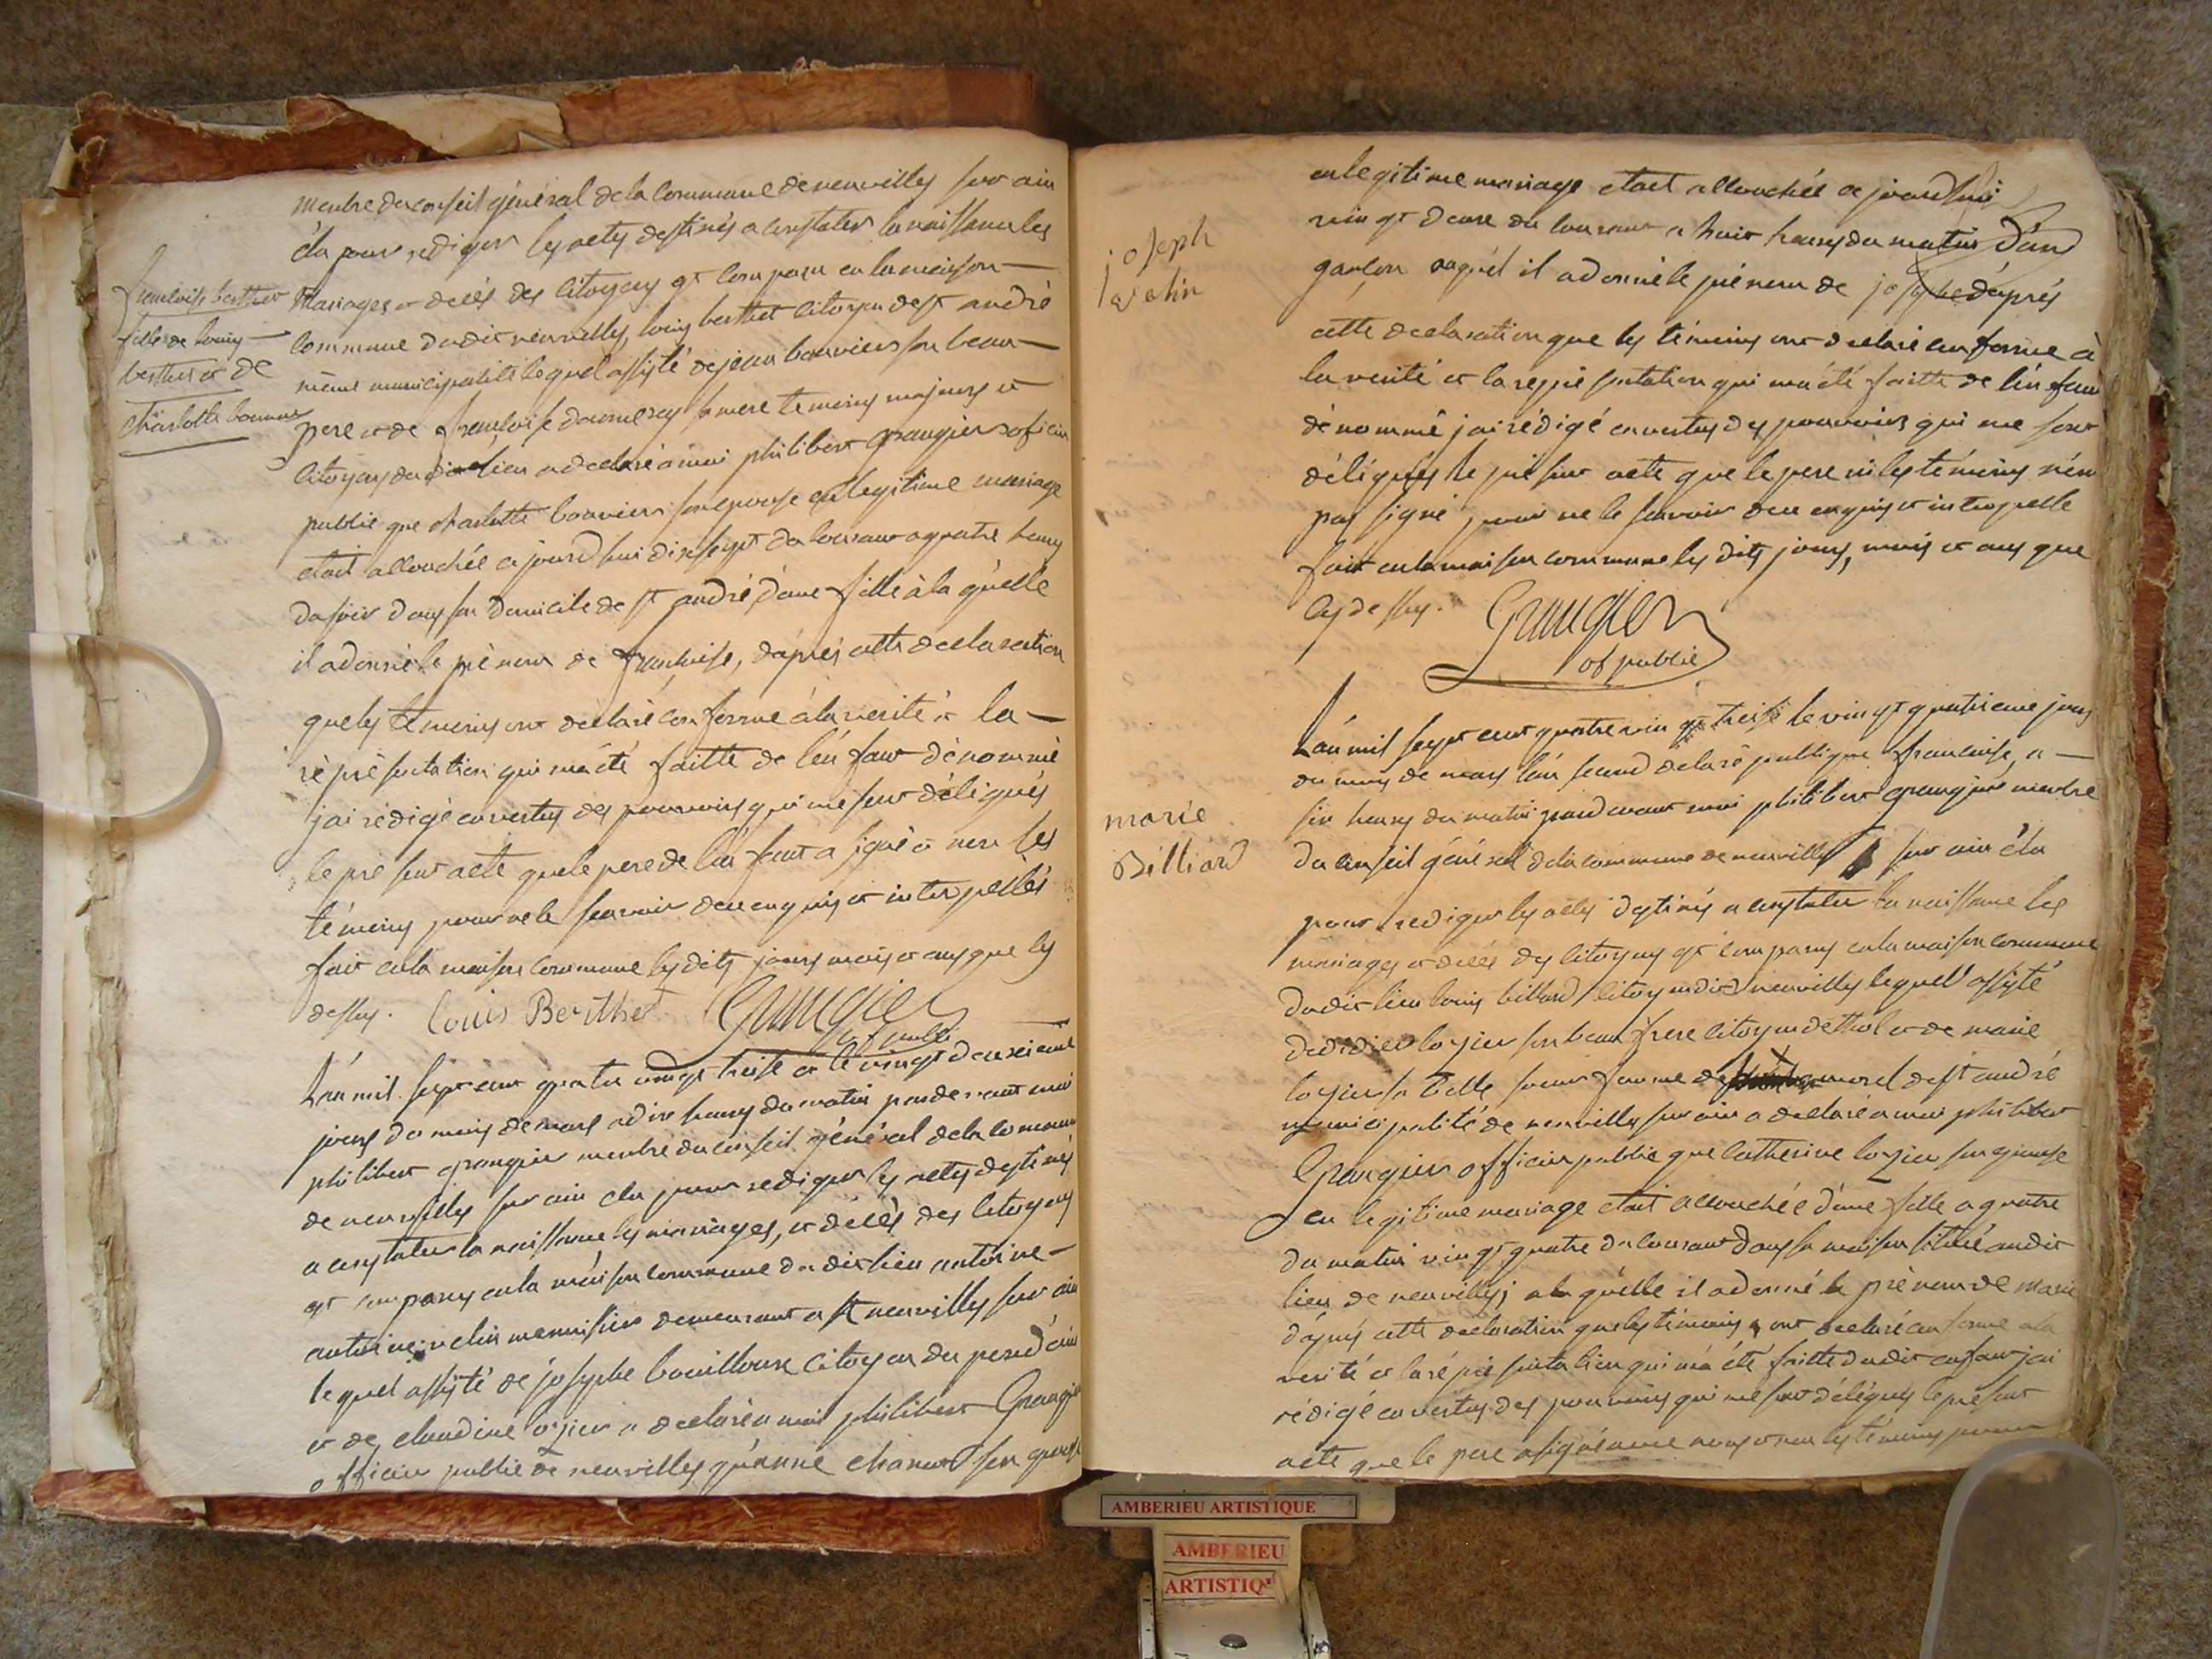 françoise berthet
fille de louis
berthet et de
charlotte bouvier
membre du conseil général de la commune de neuvilles sur ain
élu pour rediger les actes destinés a constater la naissance les
mariages et decés des citoyens est comparu en la maison
commune dudit neuvilles, louis berthet citoyen de st andré
même municipalité lequel assisté de jean bouvier son beau
pere et de françoise sa mere temoins majeurs et
citoyens dudit lieu a declaré a moi philibert grangier oficier
public que charlotte bouvier son epouse en legitime mariage
etait accouchée ce jourd'hui dix sept du courant a quatre heures
du soir dans son domicile de st andré, d'une fille à la quelle
il a donné le prénom de françoise, d'aprés cette declaration
que les témoins ont declaré conforme à la verité et la
réprésentation qui m'a été faitte de l'enfant dénommé
j'ai rédigé en vertus des pouvoirs qui me sont délégués
le présent acte que le pere de l'enfant a signé et non les
témoins pour ne le scavoir de ce enquis et interpellés
fait en la maison commune les dits jours mois et ans que cy
dessus. Louis Berthet Grangier
of public
L'an mil sept cent quatre vingt treise et le vingt deuxieme
jours du mois de mars a dix heures du matin pardevant moi
philibert grangier membre du conseil général de la commune
de neuvilles sur ain élu pour rediger les actes destinés
a constater la naissance les mariages, et décés des citoyens
est comparus en la maison commune dudit lieu antoine
antoine velin menuisier demeurant a neuvilles sur ain
lequel assisté de josephe bouilloux citoyen du pont d'ain
et de claudine logier a declaré a moi philibert Grangier
officier public de neuvilles qu'anne chanel son epouse
joseph
velin
en legitime mariage etait accouchée ce jourd'hui
vingt deux du courant a huit heures du matin d'un
garçon auquel il a donné le prénom de josephe d'aprés
cette declaration que les témoins ont declaré conforme à
la verité et la representation qui m'a été faitte de l'enfant
dénommé j'ai rédigé en vertus des pouvoirs qui me sont
délégués le présent acte que le pere ni les témoins n'ont
pas signé pour ne le scavoir de ce enquis et interpellé
fait en la maison commune les dits jours, mois et ans que
cy dessus. Grangier
of public
marie
Billiard
L'an mil sept cent quatre vingt treise le vingt quatrieme jours
du mois de mars l'an second de la république francaise, a
six heures du matin pardevant moi philibert grangier membre
du conseil général de la commune de neuvilles sur ain élu
pour rediger les actes destinés a constater la naissance les
mariages et décés des citoyens est comparus en la maison commune
dudit lieu louis billiard citoyen dudit neuvilles lequel assisté
de didier logier son beau frere citoyen de thol et de marie
logier sa belle soeur femme de morel de st andré
municipalité de neuvilles sur ain a declaré a moi philibert
Grangier officier public que catherine logier son epouse
en legitime mariage etait accouchée d'une fille a quatre
du matin vingt quatre du courant dans sa maison située audit
lieu de neuvilles; a la quelle il a donné le prénom de marie
d'aprés cette declaration que les témoins ont declaré conforme a la
verité et la réprésentation qui m'a été faitte dudit enfant j'ai
rédigé en vertus des pouvoirs qui me sont délégués le présent
acte que le pere a signé avec nous et non les témoins pour
AMBERIEU ARTISTIQUE
AMBERIEU
ARTISTIQ